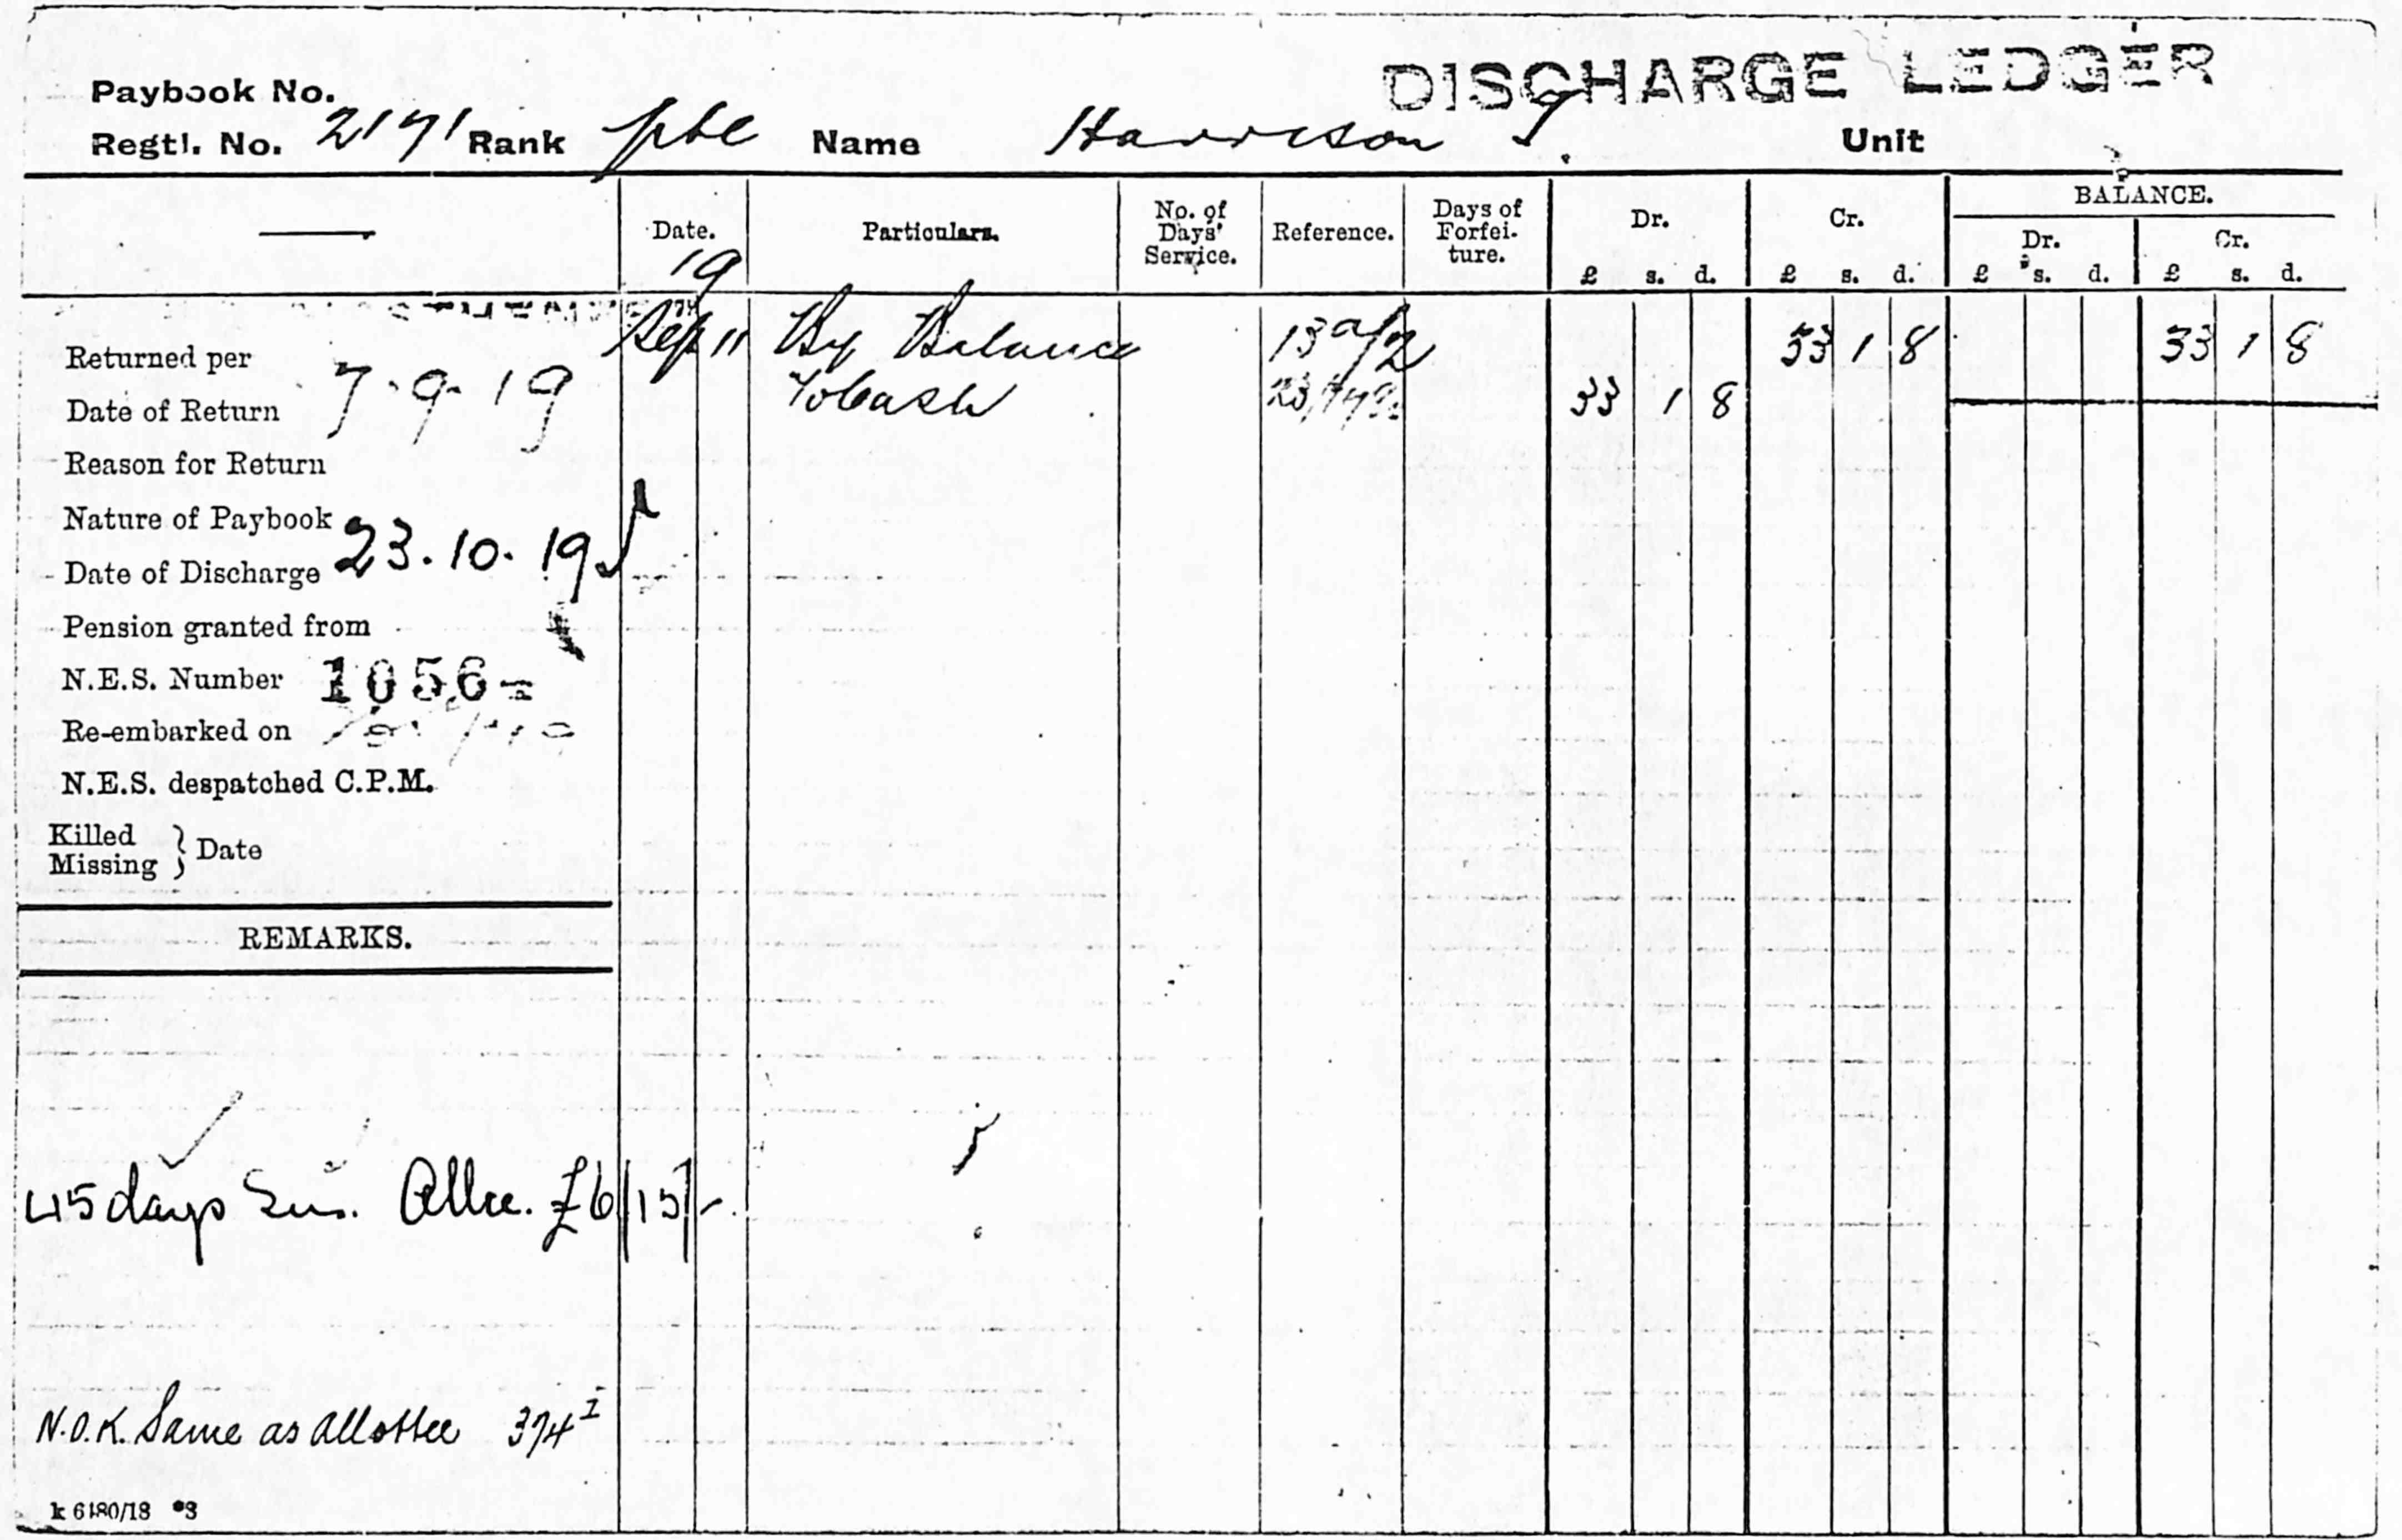 DISCHARGE LEDGER
Paybook No.
Regtl. No. 2171 Rank pte Name Harrison J. Unit
Date. Particulars. No. of Days' Service. Reference. Days of Forfei-ture. Dr. £ s. d. Cr. £ s. d. BALANCE. Dr. £ s. d. Cr. £ s. d.
19
Sep 11 By Balance 33 1 8 33 1 8
To Cash 33 1 8
Returned per
Date of Return 7.9.19
Reason for Return
Nature of Paybook
Date of Discharge 23.10.19
Pension granted from
N.E.S. Number 1056
Re-embarked on
N.E.S. despatched C.P.M.
Killed
Missing } Date
REMARKS.
45 days Sus. Allce. £6/15/-.
N.O.K. Same as allottee 374 I
k 6180/18 *3